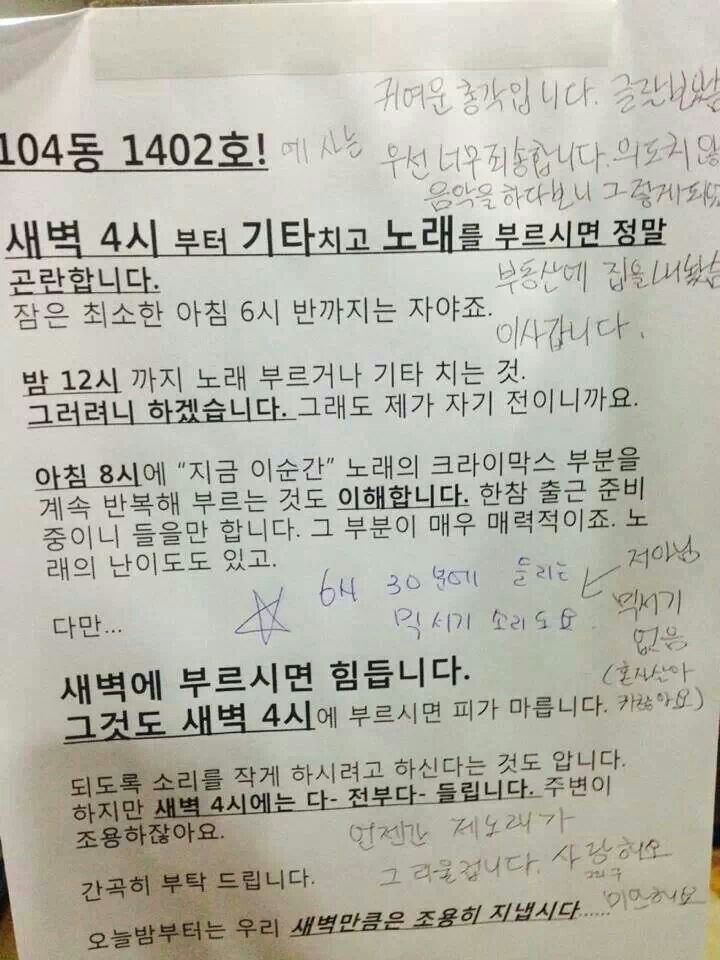 귀여운 총각입니다. 글란
104동 1402호! 에 사는
우선 너무 죄송합니다. 의도치 않
음악을 하다보니 그렇게
새벽 4시 부터 기타치고 노래를 부르시면 정말
곤란합니다.
부동산에 집을 내놨습
잠은 최소한 아침 6시 반까지는 자야죠.
이사갑니다.
밤 12시 까지 노래 부르거나 기타 치는 것.
그러려니 하겠습니다. 그래도 제가 자기 전이니까요.
아침 8시에 “지금 이순간” 노래의 크라이막스 부분을
계속 반복해 부르는 것도 이해합니다. 한참 출근 준비
중이니 들을만 합니다. 그 부분이 매우 매력적이죠. 노
래의 난이도도 있고.
☆ 6시 30분에 들리는
믹서기 소리도요.
저아님
믹서기
없음
(혼자살아
다만...
새벽에 부르시면 힘듭니다.
그것도 새벽 4시에 부르시면 피가 마릅니다.
되도록 소리를 작게 하시려고 하신다는 것도 압니다.
하지만 새벽 4시에는 다- 전부다- 들립니다. 주변이
조용하잖아요.
언젠간 제노래가
그리울겁니다. 사랑해요
미안해요
간곡히 부탁 드립니다.
오늘밤부터는 우리 새벽만큼은 조용히 지냅시다......